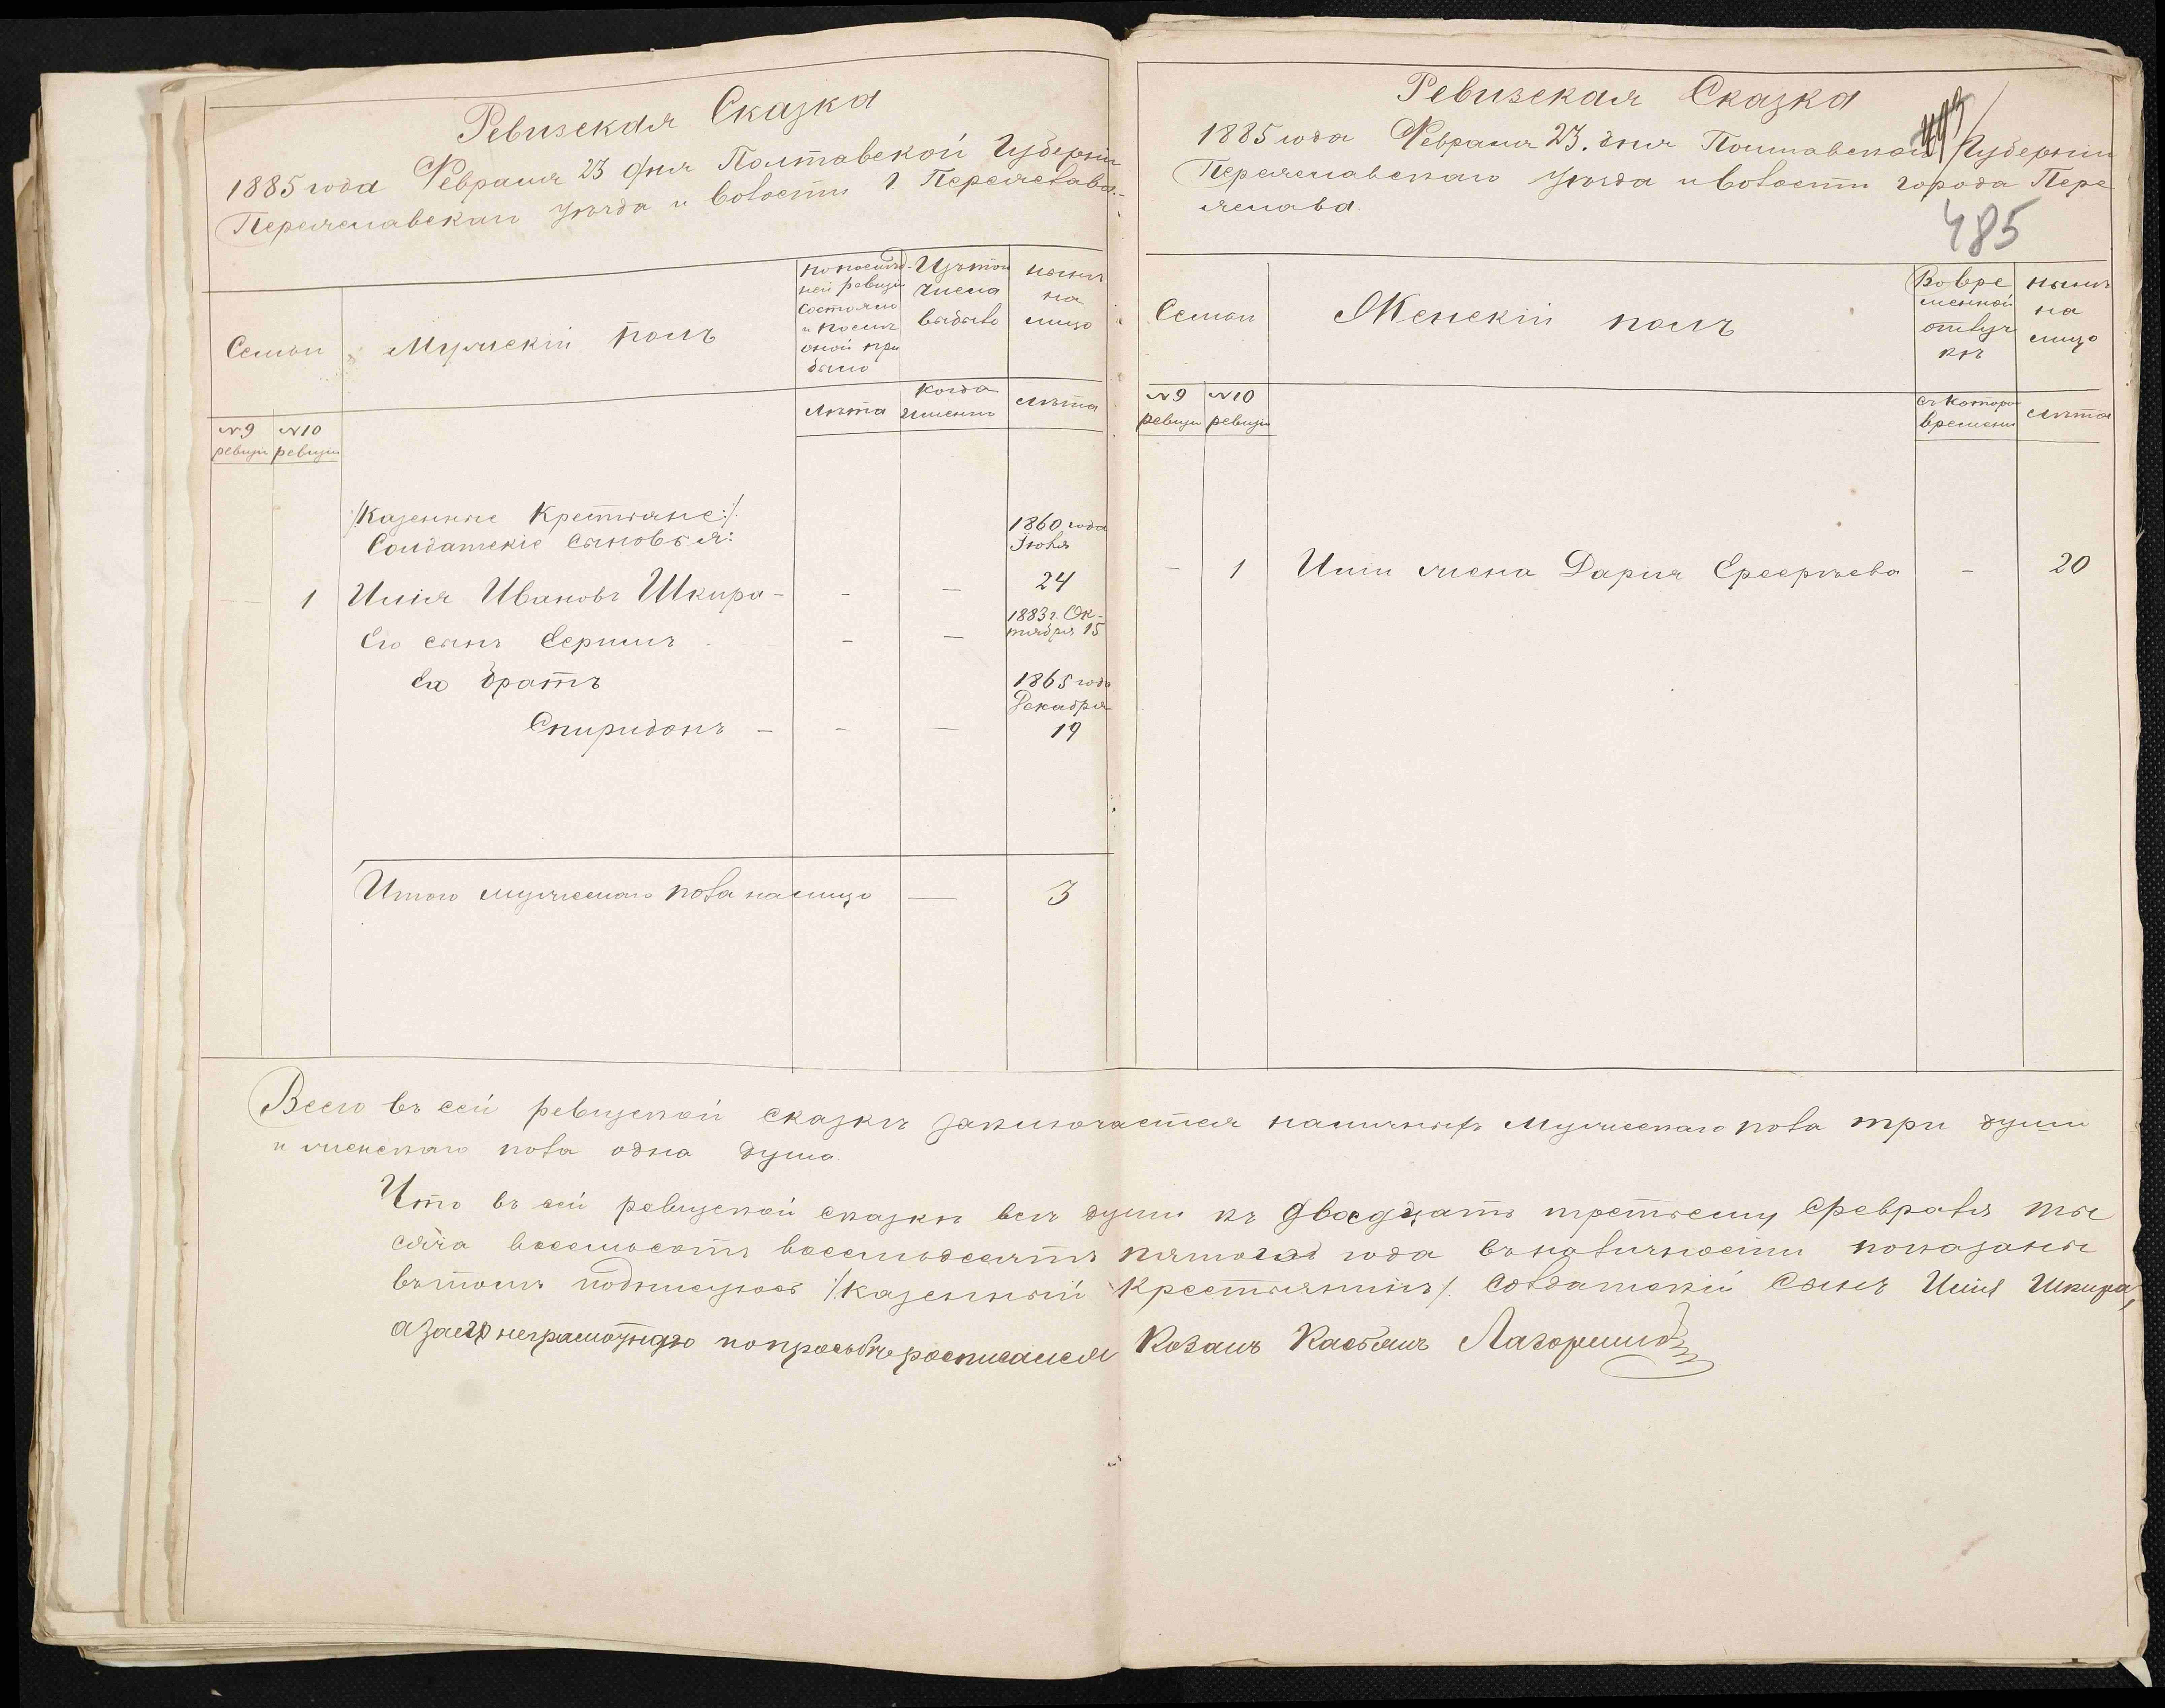 Ревизская Сказка
1885 года Февраля 23 дня Полтавской Губерніи
Переяславскаго уѣзда и волости г Переяслава.
Семьи
Мужескій полъ
по послѣд-
ней ревизіи
состояло
и послѣ
оной при
было
Изъ того
числа
выбыло
нынѣ
на
лицо
№9
ревизіи
№10
ревизіи
лѣта
когда
именно
лѣта
/:Казенные Крестьяне:/
Солдатскіе сыновья:
1860 года
Іюля
1 Илія Ивановъ Шкира - - — 24
Его сынъ Сергій - — 1883 г. Ок-
тября 15
Его братъ
1865 года
Декабря
Спиридонъ - - — 19
Итого мужескаго пола налицо — 3
Ревизская Сказка
493
1885 года Февраля 23. дня Полтавской Губерніи
Переяславскаго уѣзда и волости города Пере
яслава
485
Семьи
Женскій полъ
Во вре
менной
отлуч
кѣ
нынѣ
на
лицо
№9
ревизіи
№10
ревизіи
съ котора
времени
лѣта
— 1 Иліи жена Дарія - 20
Всего въ сей ревизской сказкѣ заключается наличныхъ мужескаго пола три души
и женскаго пола одна душа
Что въ сей ревизской сказкѣ всѣ души къ двадцать третьему февраля ты
сяча восемьсотъ восемьдесятъ пятого года въ наличности показаны
въ томъ подписуюсь /:казенный Крестьянинъ:/ солдатскій Сынъ Илія Шкира,
а за его неграмотнаго по прозьбѣ росписался Козакъ Касьянъ